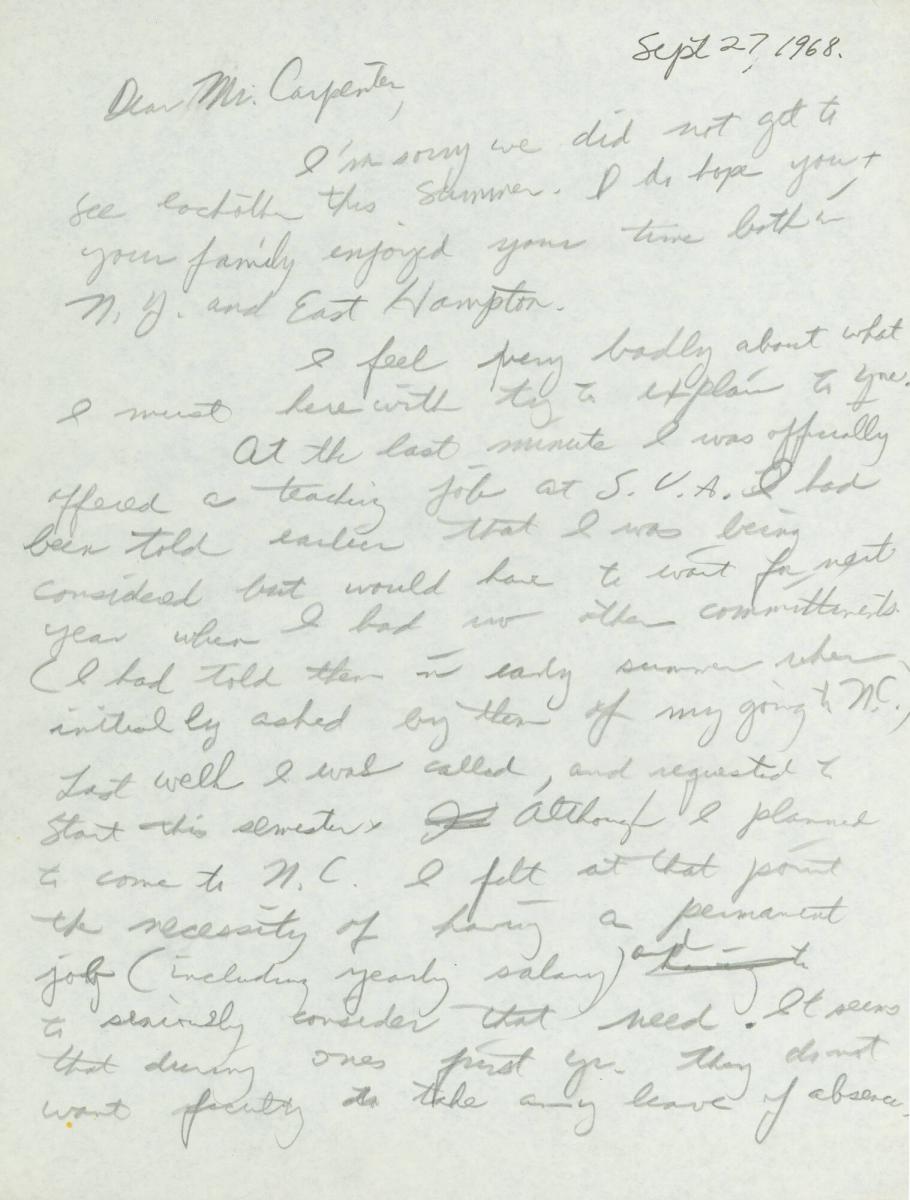 Sept 27, 1968.
Dear Mr. Carpenter,
I'm sorry we did not get to
see eachother this Summer. I do hope you +
your family enjoyed your time both in
N.Y. and East Hampton.
I feel very badly about what
I must here with try to explain to you.
At the last minute I was officially
offered a teaching job at S.V.A. I had
been told earlier that I was being
considered but would have to wait for next
year when I had no other committments.
(I had told them in early summer when
initially asked by them of my going to N.C.)
Last week I was called, and requested to
start this semester. Although I planned
to come to N.C. I felt at that point
the necessity of having a permanent
job (including yearly salary) and having to
to seriously consider that need. It seems
that during ones first yr. they do not
want faculty to take any leave of absence.